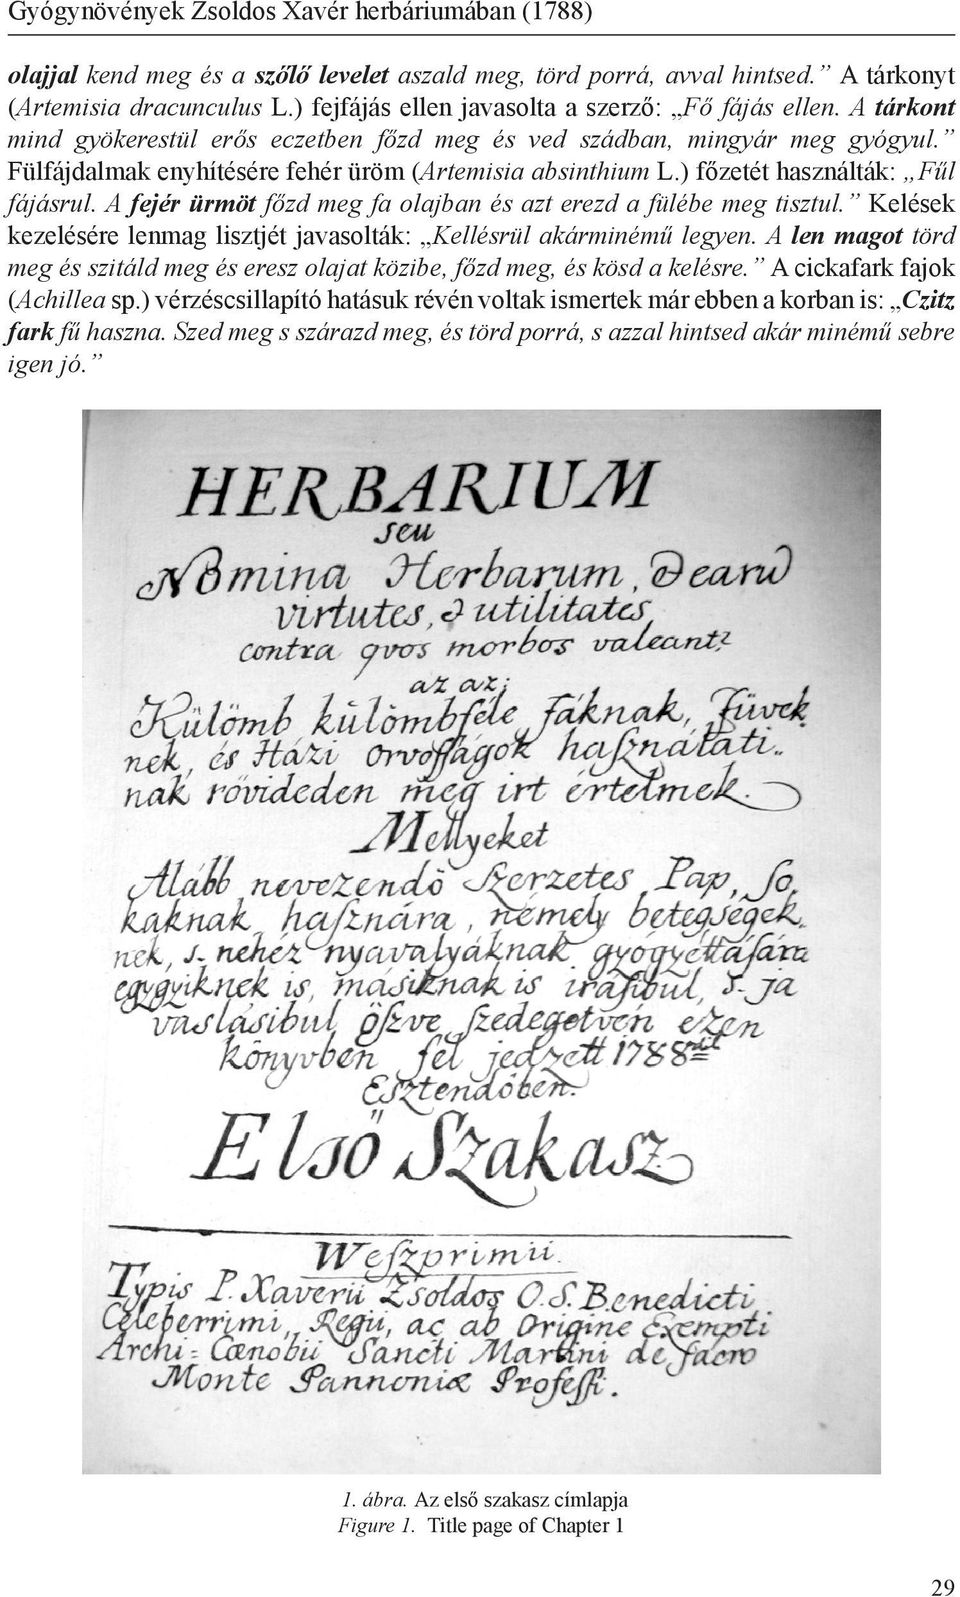 Gyógynövények Zsoldos Xavér herbáriumában (1788)
olajjal kend meg és a szőlő levelet aszald meg, törd porrá, avval hintsed.” A tárkonyt
(Artemisia dracunculus L.) fejfájás ellen javasolta a szerző: „Fő fájás ellen. A tárkont
mind gyökerestül erős eczetben főzd meg és ved szádban, mingyár meg gyógyul.”
Fülfájdalmak enyhítésére fehér üröm (Artemisia absinthium L.) főzetét használták: „Fűl
fájásrul. A fejér ürmöt főzd meg fa olajban és azt erezd a fülébe meg tisztul.” Kelések
kezelésére lenmag lisztjét javasolták: „Kellésrül akárminémű legyen. A len magot törd
meg és szitáld meg és eresz olajat közibe, főzd meg, és kösd a kelésre.” A cickafark fajok
(Achillea sp.) vérzéscsillapító hatásuk révén voltak ismertek már ebben a korban is: „Czitz
fark fű haszna. Szed meg s szárazd meg, és törd porrá, s azzal hintsed akár minémű sebre
igen jó.”
HERBARIUM
seu
Nomina Herbarum, & earū
virtutes, & utilitates
contra qvos morbos valeant?
az az;
Külömb külömbféle fáknak, Füvek
nek, és Házi orvoſſágok haſználati..
nak rövideden meg irt értelmek.
Mellyeket
Alább nevezendö Szerzetes Pap, ſo
kaknak haſznára, némely betegségek
nek, s. nehéz nyavalyáknak gyógyéttáſára
egygyiknek is, másiknak is iráſibul, s. ja
vaslásibul öſzve ſzedegetvén ezen
könyvben fel jedzett 1788dik
Esztendöben.
Elsö Szakasz
Weſzprimii.
Typis P. Xaverii Zsoldos O.S. Benedicti
Celeberrimi, Regii, ac ab Origine Exempti
Archi=Cœnobii Sancti Martini de ſacro
Monte Pannoniæ Profeſſi.
1. ábra. Az első szakasz címlapja
Figure 1. Title page of Chapter 1
29